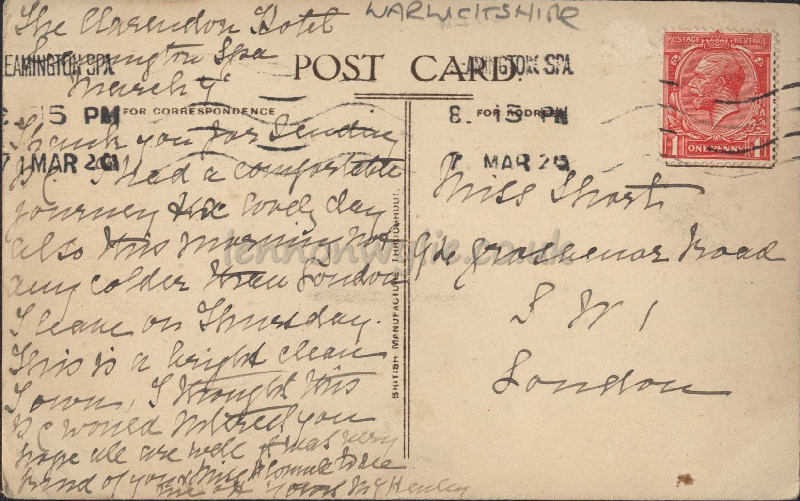 WARWICKSHIRE
The Clarendon Hotel
Leamington Spa
March 9
POST CARD.
LEAMINGTON SPA
LEAMINGTON SPA
8. 15 PM
8. 15 PM
7 MAR 20
7 MAR 20
POSTAGE REVENUE
ONE PENNY
FOR CORRESPONDENCE
FOR ADDRESS
Thank you for sending
P.C. I had a comfortable
journey & a lovely day
also this morning not
any colder than London
I leave on Thursday.
This is a bright clean
Town, I thought this
P C would interest you
hope all are well it was very
kind of you & Miss to come to see
me off Yours M J Henley
BRITISH MANUFACTURE THROUGHOUT.
Miss Short
Grosvenor Road
S W 1
London
lennonwylie.co.uk